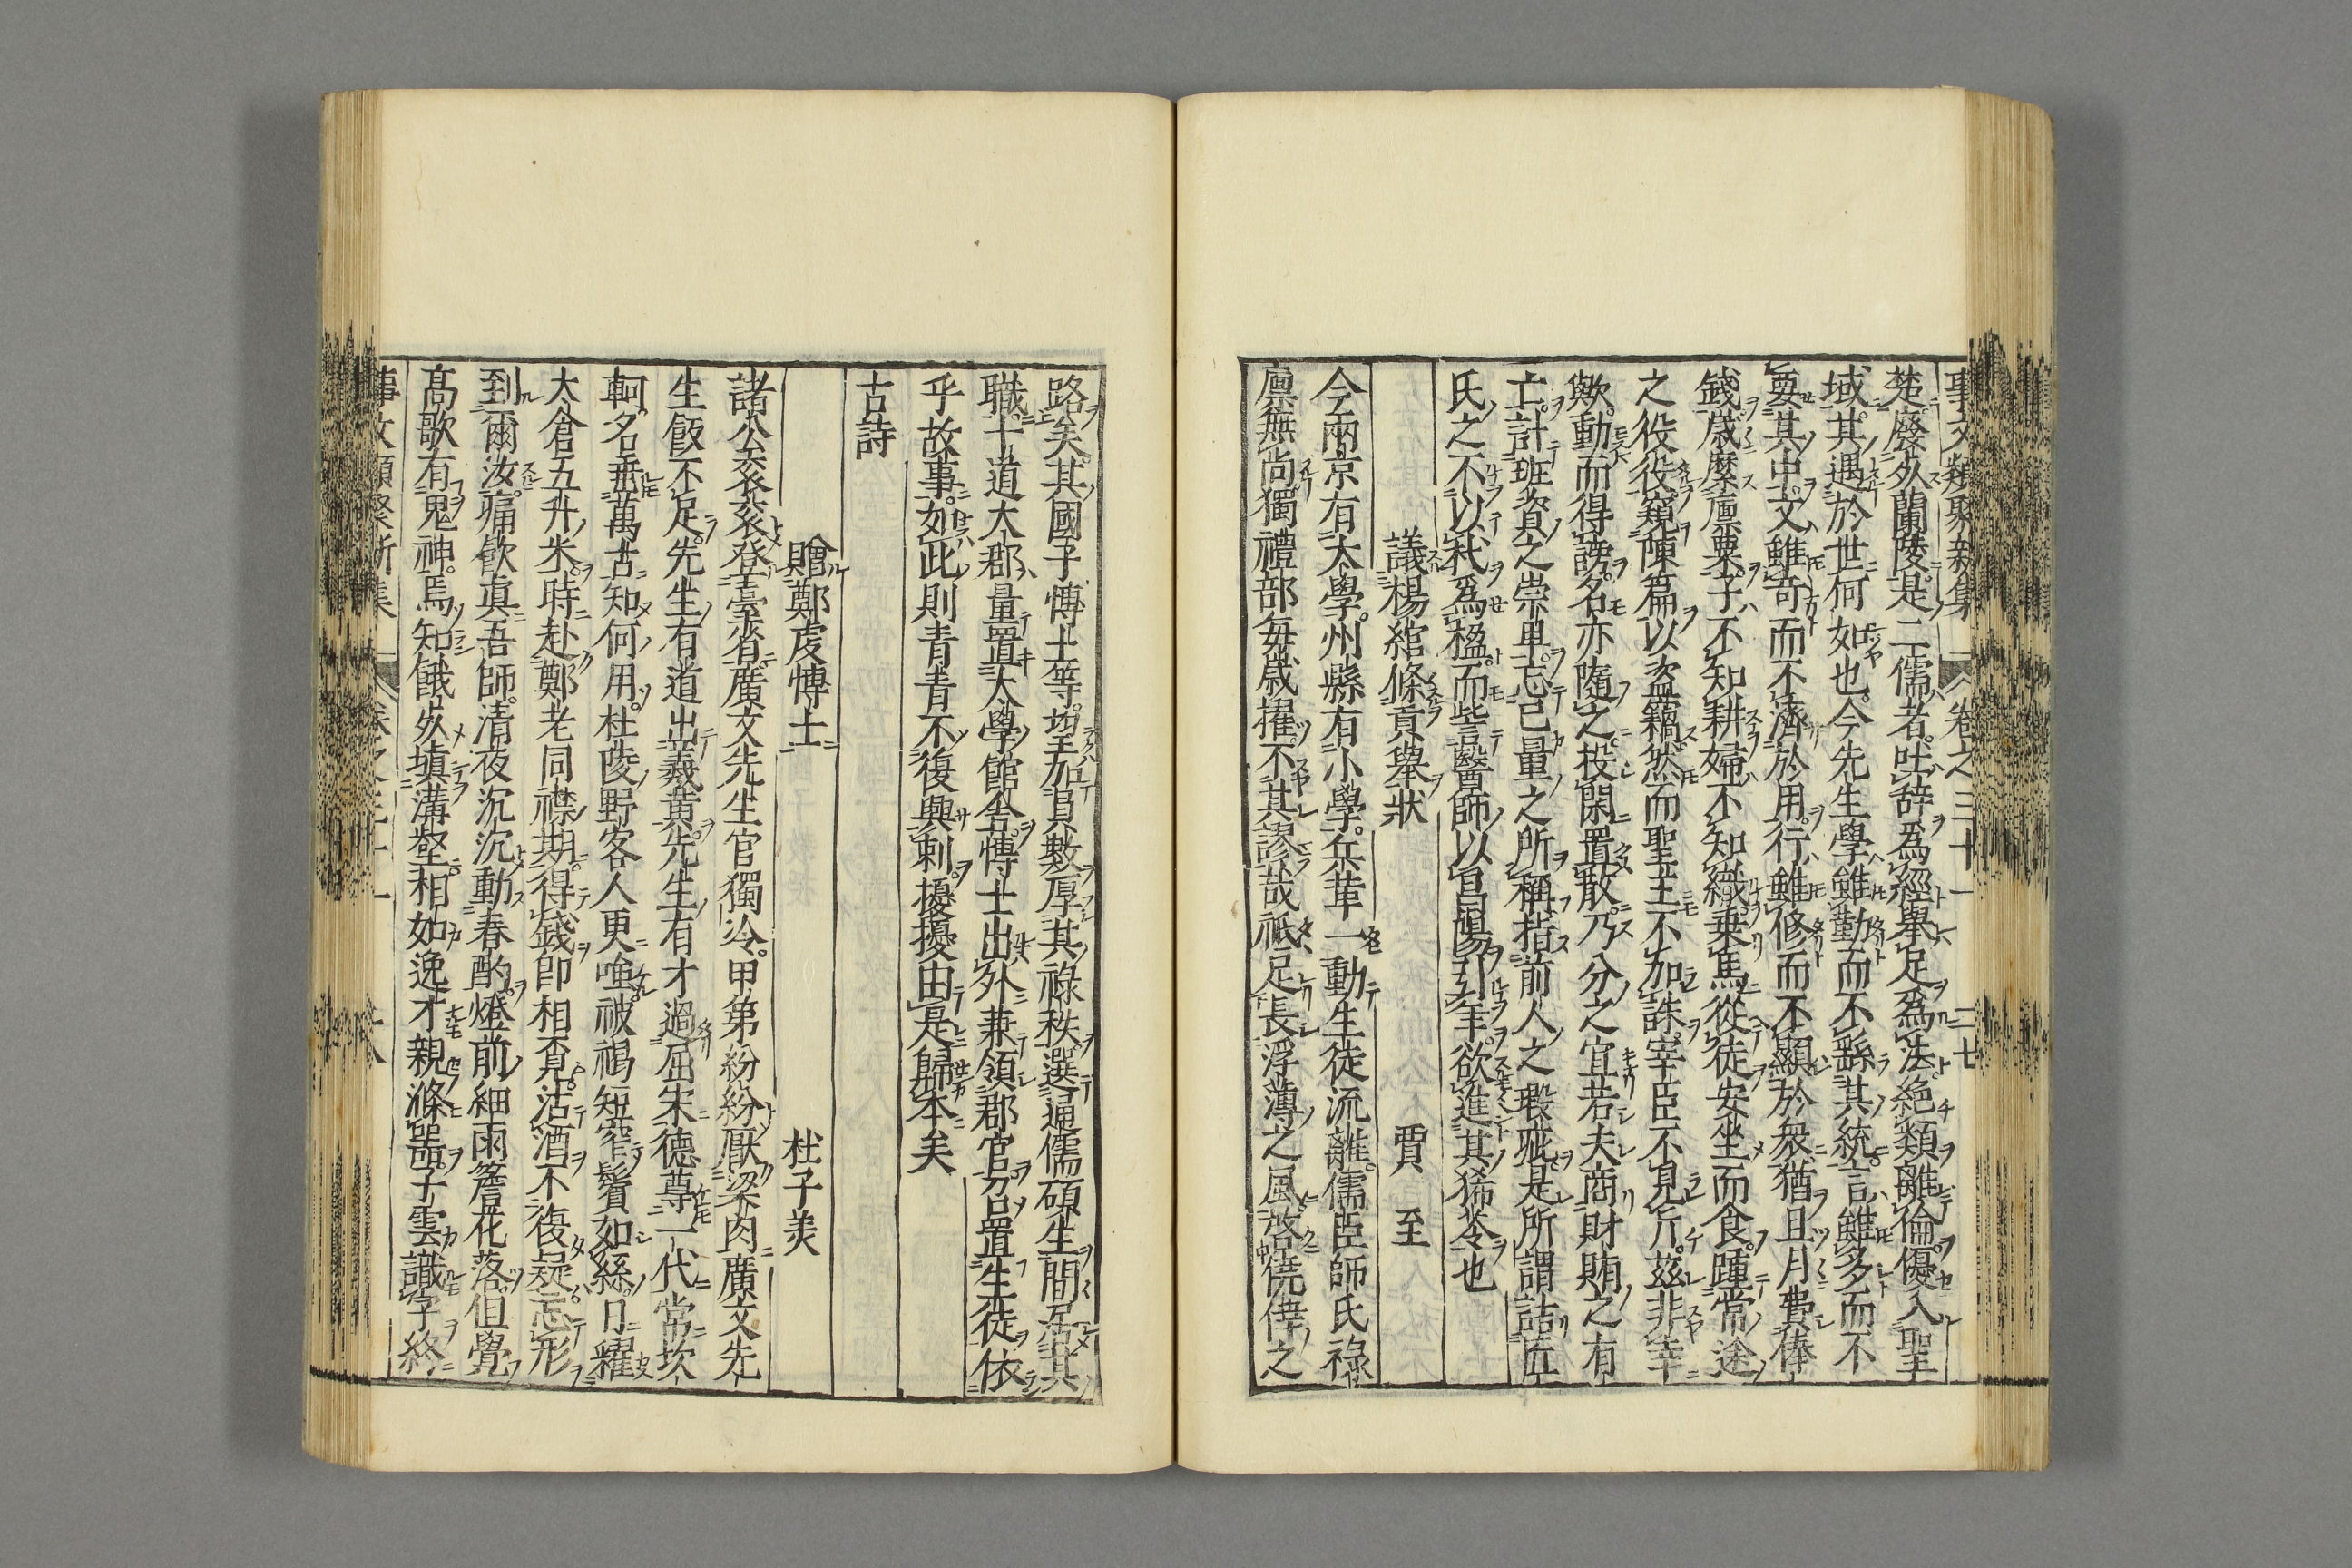 事文類聚新集 卷之三十一 二七
楚廢死蘭陵是二儒者。吐辞爲經舉足爲法。絶類離倫。優入聖
域。其遇於世何如也。今先生學雖勤而不繇其統。言雖多而不
要其中。文雖奇而不濟於用。行雖修而不顯於衆。猶且月費俸
錢。歲縻廪粟。子不知耕。婦不知織。乗馬從徒安坐而食。踵常途
之役役。窺陳篇以盗竊。然而聖主不加誅。宰臣不見斥。茲非幸
歟。動而得謗。名亦隨之。投閑置散。乃分之宜。若夫商財賄之有
亡。計班資之崇卑。忘己量之所稱。指前人之瑕疵。是所謂詰匠
氏之不以杙爲楹。而訾醫師以昌陽引年。欲進其狶苓也
議楊綰條貢舉狀 賈至
今兩京有太學。州縣有小學。兵革一動。生徒流離。儒臣師氏祿
廪無尚。獨禮部每歲擢。不其謬哉。祇足長浮薄之風。啓僥倖之
路矣。其國子博士等。望加員數。厚其祿秩。選通儒碩生。間居其
職。十道大郡。量置太學館舍。博士出外。兼領郡官。召置生徒。依
乎故事。如此則青青不復興刺。擾擾由是歸本矣
古詩
贈鄭虔博士 杜子美
諸公衮衮登臺省。廣文先生官獨冷。甲第紛紛厭梁肉。廣文先
生飯不足。先生有道出羲黄。先生有才過屈宋。德尊一代常坎
軻。名垂萬古知何用。杜陵野客人更嗤。被褐短窄鬢如絲。日糴
太倉五升米。時赴鄭老同襟期。得錢卽相覔。沽酒不復疑。忘形
到爾汝。痛飲真吾師。清夜沉沉動春酌。燈前細雨簷花落。但覺
高歌有鬼神。焉知餓死填溝壑。相如逸才親滌器。子雲識字終